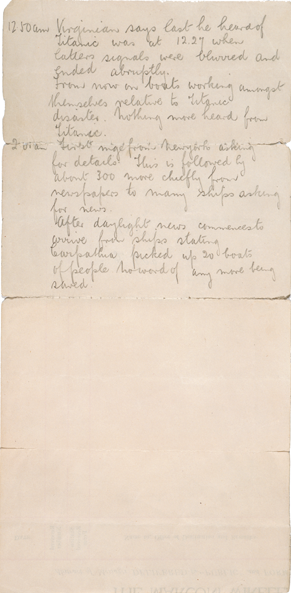 12.50am Virginian says last he heard of
Titanic was at 12.27 when
latters signals were blurred and
ended abruptly.
From now on boats working amongst
themselves relative to Titanic
disaster. Nothing more heard from
Titanic.
2.05am First msge from Newyork asking
for details. This is followed by
about 300 more chiefly from
newspapers to many ships asking
for news.
After daylight news commences to
arrive from ships stating
Carpathia picked up 20 boats
of people no word of any more being
saved